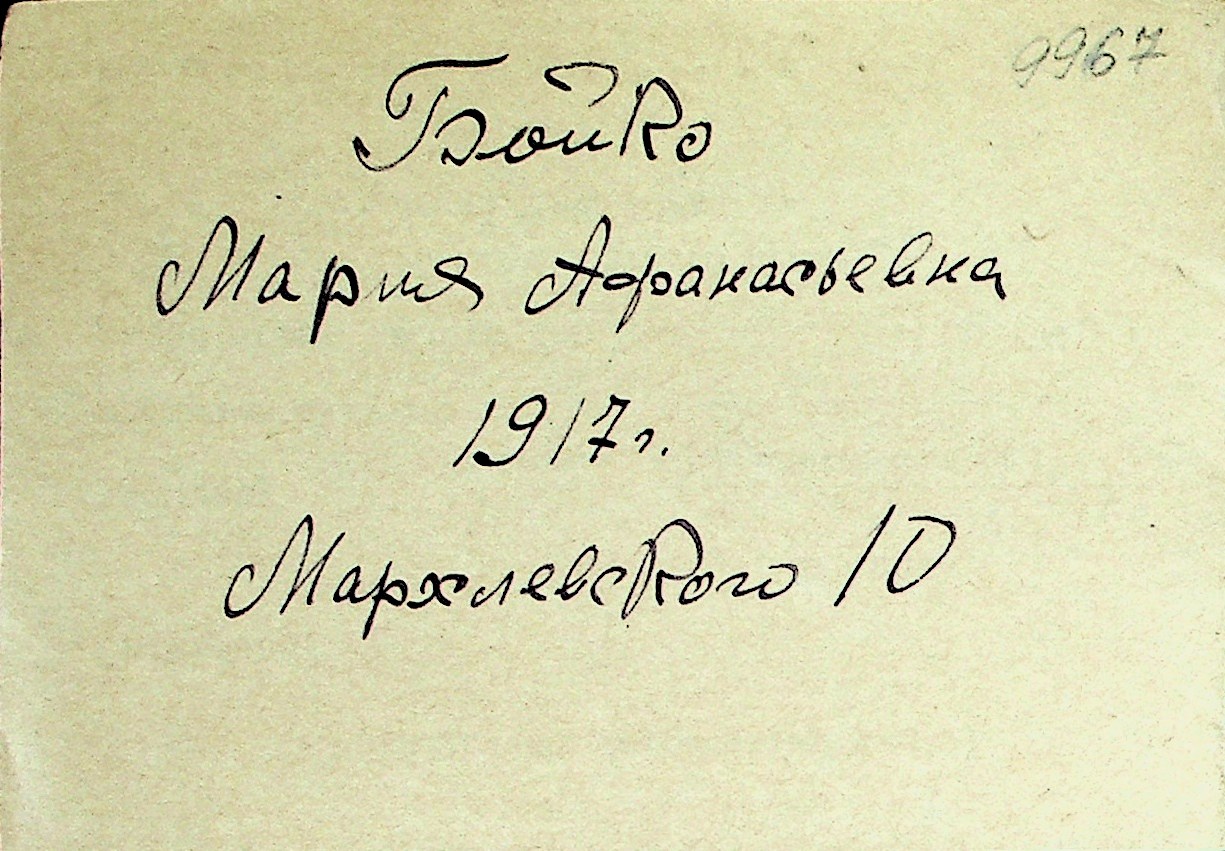 9967
Бойко
Мария Афанасьевна
1917г.
Мархлевского 10